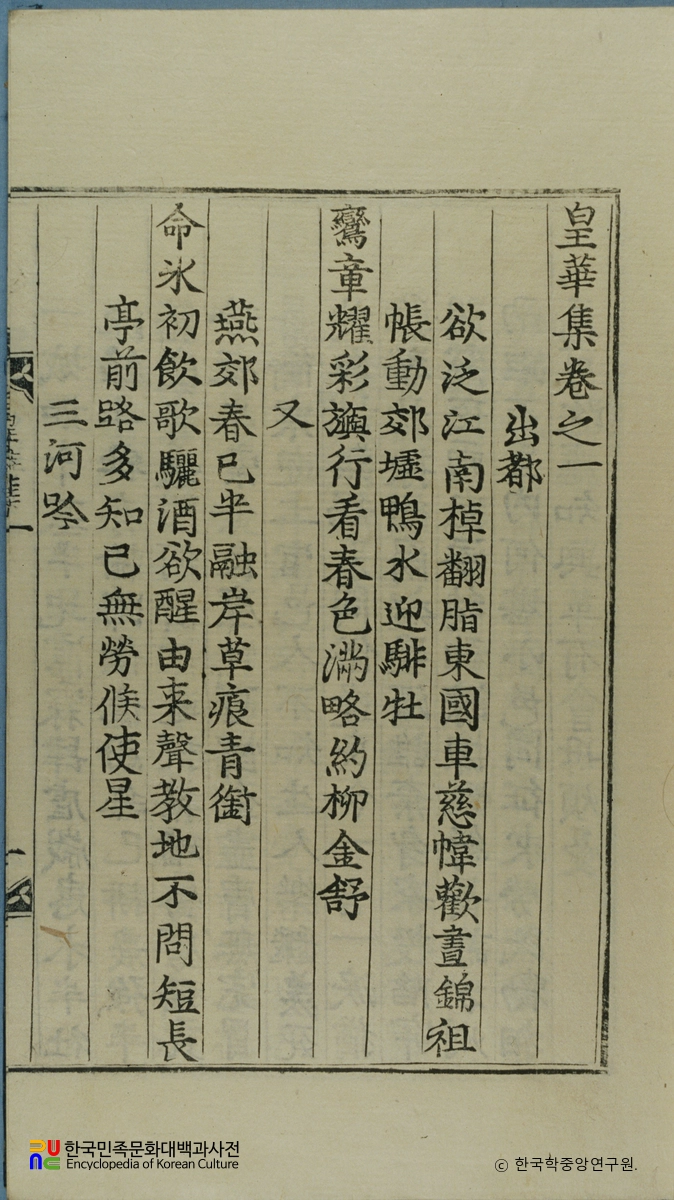 皇華集卷之一
出都
欲泛江南棹翻脂東國車慈幃歡晝錦祖
帳動郊墟鴨水迎騑牡
鸞章耀彩旟行看春色滿略約柳金舒
又
燕郊春已半融岸草痕青銜
命氷初飮歌驪酒欲醒由来聲教地不問短長
亭前路多知已無勞候使星
三河吟
한국민족문화대백과사전
Encyclopedia of Korean Culture
ⓒ 한국학중앙연구원.